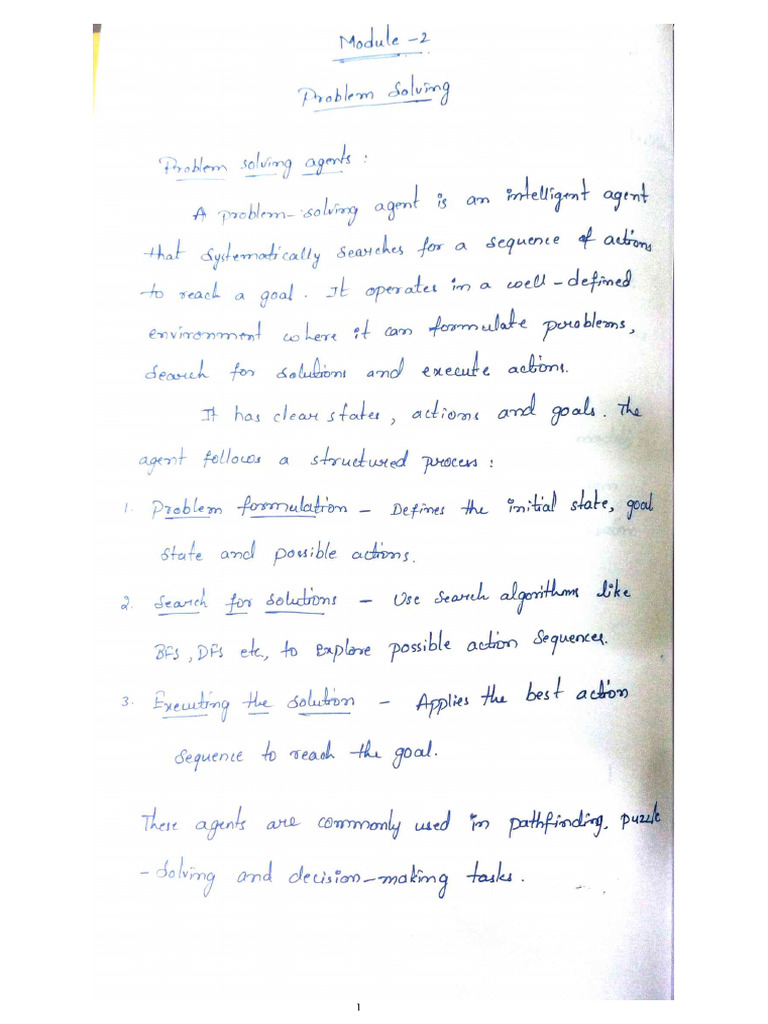 Module -2
Problem Solving
Problem solving agents :
A problem-solving agent is an intelligent agent
that systematically searches for a sequence of actions
to reach a goal. It operates in a well-defined
environment where it can formulate problems,
search for solutions and execute actions.
It has clear states, actions and goals. The
agent follows a structured process :
1. Problem formulation - Defines the initial state, goal
state and possible actions.
2. Search for solutions - Use search algorithms like
BFS, DFS etc., to explore possible action sequences.
3. Executing the solution - Applies the best action
sequence to reach the goal.
These agents are commonly used in pathfinding, puzzle
-solving and decision-making tasks.
1